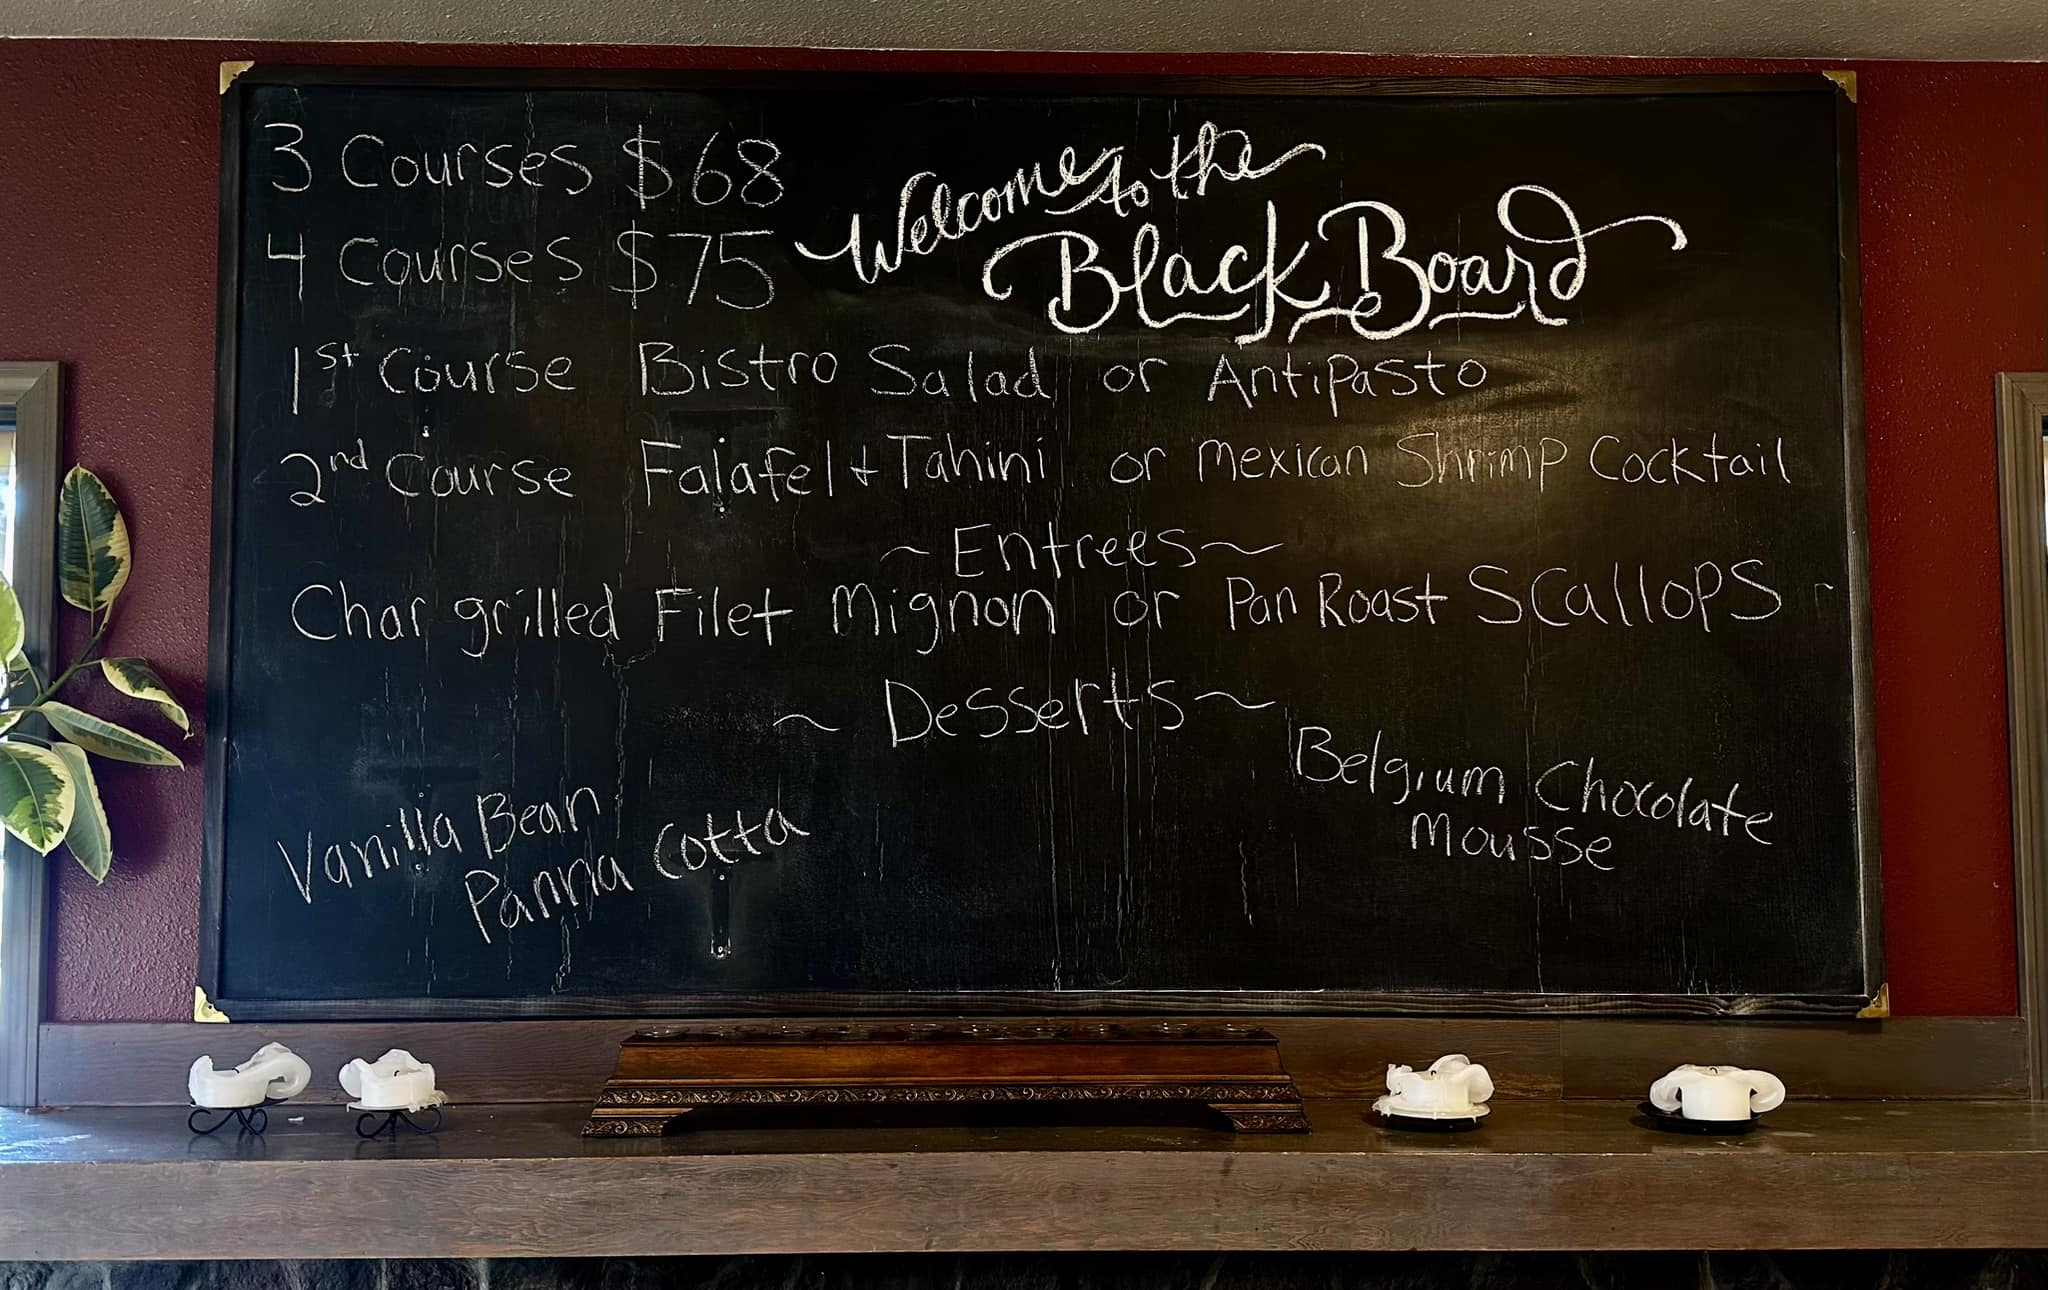 3 Courses $68
4 Courses $75
Welcome to the
Black Board
1st Course Bistro Salad or Antipasto
2nd Course Falafel + Tahini or Mexican Shrimp Cocktail
~ Entrees ~
Char grilled Filet Mignon or Pan Roast Scallops
~ Desserts ~
Vanilla Bean
Panna Cotta
Belgium Chocolate
Mousse